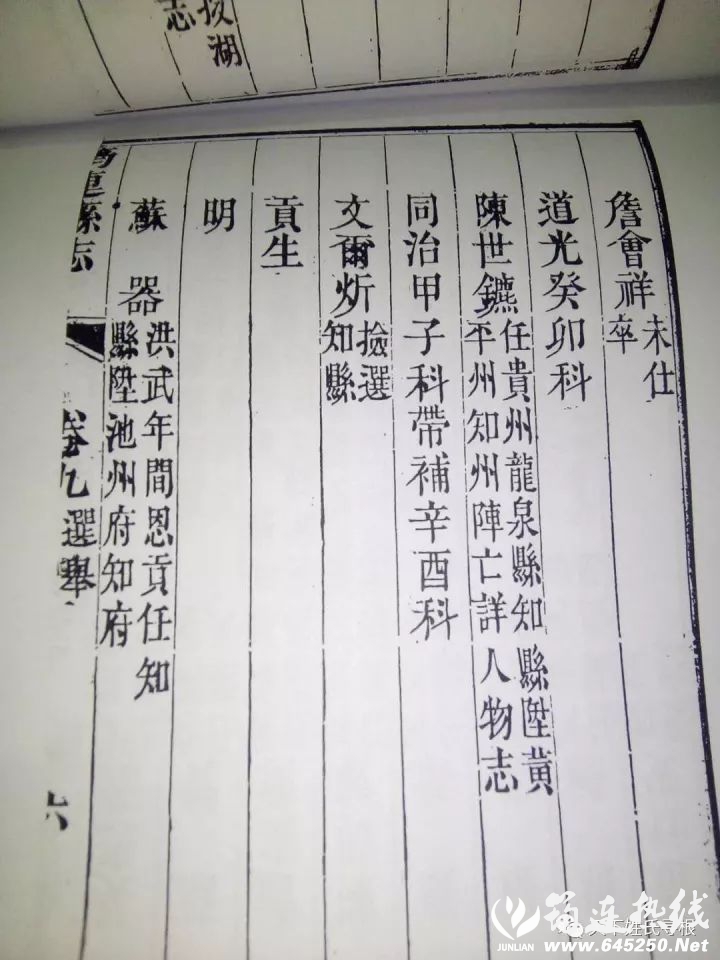 技湖
志
詹會祥未仕
卒
道光癸卯科
陳世鑣任貴州龍泉縣知縣陞黃
平州知州陣亡詳人物志
同治甲子科帶補辛酉科
文爾炘撿選
知縣
貢生
明
蘇器洪武年間恩貢任知
縣陞池州府知府
筠連縣志
卷九選舉
六
筠连热线
JUNLIAN
www.645250.Net
天下姓氏寻根